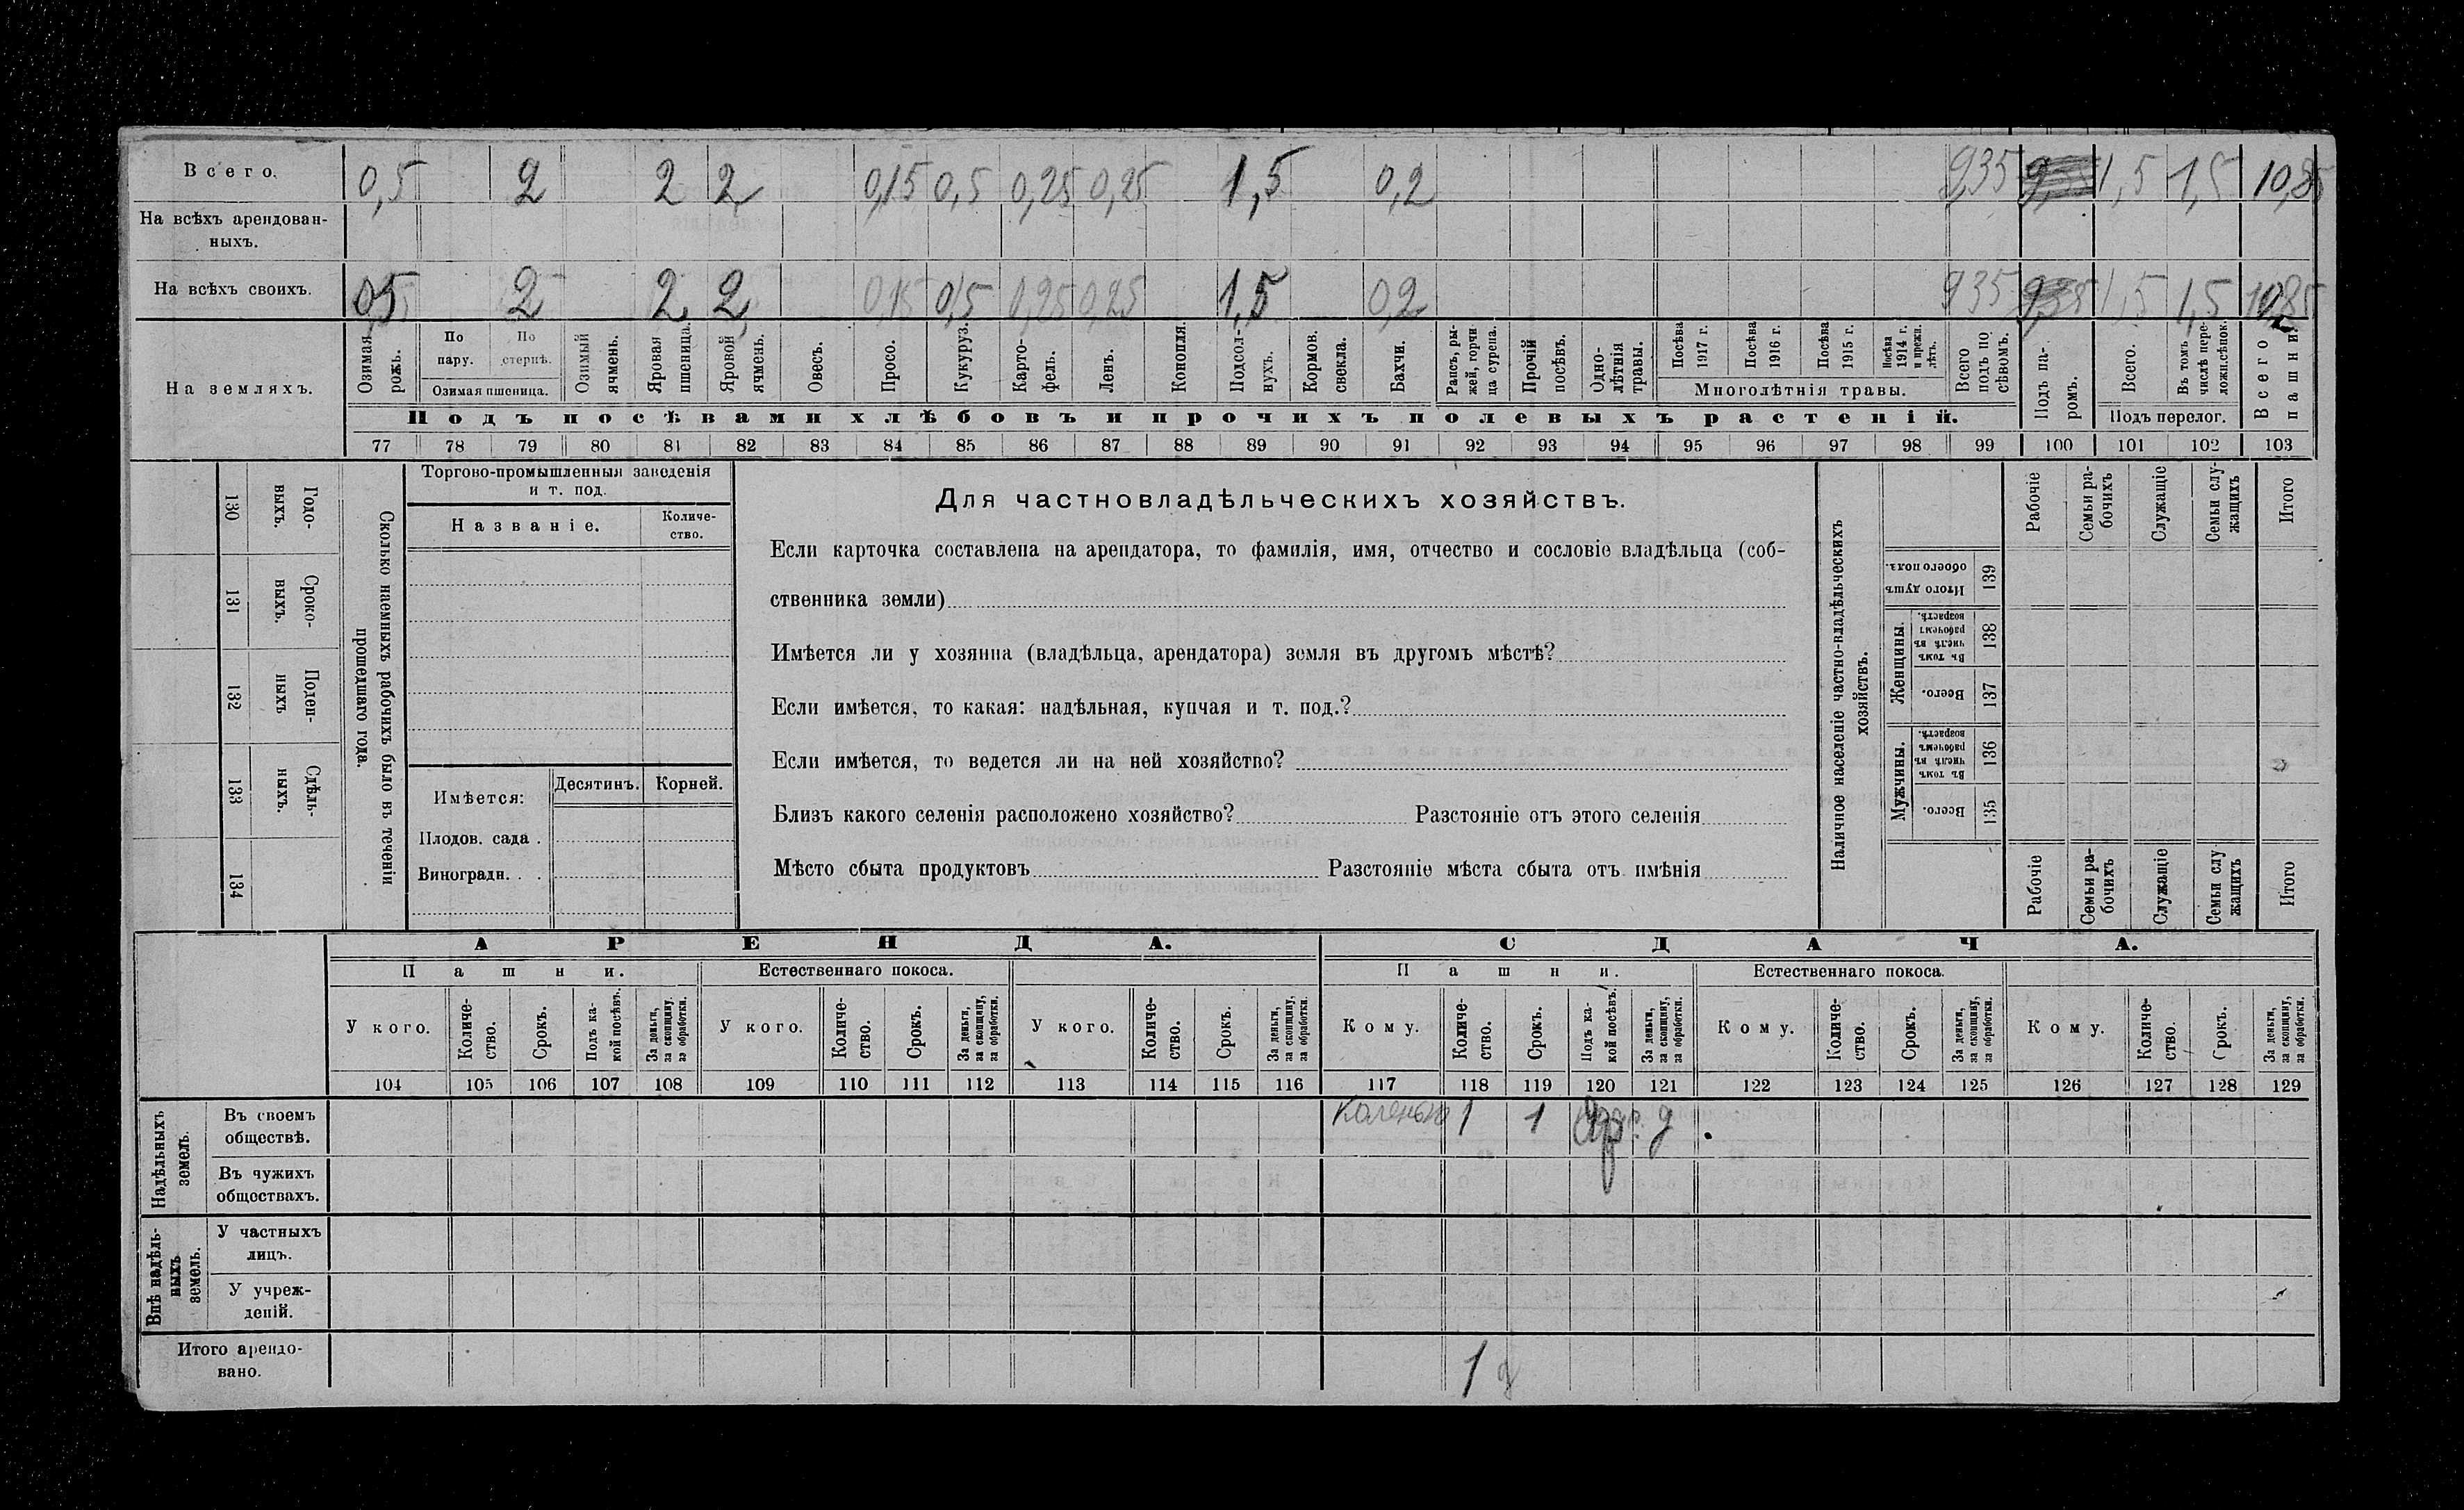 Всего. 0,5 2 2 2 0,15 0,5 0,25 0,25 1,5 0,2 9,35 1,5 1,5 10,85
На всѣхъ арендован-
ныхъ.
На всѣхъ своихъ. 0,5 2 2 2 0,15 0,5 0,25 0,25 1,5 0,2 9,35 1,5 1,5 10,85
На земляхъ.
Озимая рожь.
По пару.
По стернѣ.
Озимая пшеница.
Озимый ячмень.
Яровая пшеница.
Яровой ячмень.
Овесъ.
Просо.
Кукуруз.
Карто-
фель.
Ленъ.
Конопля.
Подсол-
нухъ.
Кормов. свекла.
Бахчи.
Рапсъ, ры-
жей, горчи
ца сурепа.
Прочій посѣвъ.
Одно-
лѣтнія
травы.
Посѣва 1917 г.
Посѣва 1916 г.
Посѣва 1915 г.
Посѣва 1914 г. и прежн. лѣтъ.
Многолѣтнія травы.
Всего подъ по
сѣвомъ.
Подъ па-
ромъ.
Всего.
Въ томъ числѣ пере-
ложн.сѣнок.
Подъ перелог.
Всего пашни.
Подъ посѣвами хлѣбовъ и прочихъ полевыхъ растеній.
77 78 79 80 81 82 83 84 85 86 87 88 89 90 91 92 93 94 95 96 97 98 99 100 101 102 103
130 Годо-
выхъ.
131 Сроко-
выхъ.
132 Поден-
ныхъ
133 Сдѣль-
ныхъ.
134
Сколько наемныхъ рабочихъ было въ теченіи
прошедшаго года.
Торгово-промышленныя заведенія
и т. под.
Названіе.
Количе-
ство.
Имѣется: Десятинъ. Корней.
Плодов. сада .
Виноградн. . .
Для частновладѣльческихъ хозяйствъ.
Если карточка составлена на арендатора, то фамилія, имя, отчество и сословіе владѣльца (соб-
ственника земли)
Имѣется ли у хозяина (владѣльца, арендатора) земля въ другомъ мѣстѣ?
Если имѣется, то какая: надѣльная, купчая и т. под.?
Если имѣется, то ведется ли на ней хозяйство?
Близъ какого селенія расположено хозяйство? Разстояніе отъ этого селенія
Мѣсто сбыта продуктовъ Разстояніе мѣста сбыта отъ имѣнія
Наличное населеніе частно-владѣльческихъ
хозяйствъ.
Рабочіе
Семьи ра-
бочихъ
Служащіе
Семьи слу-
жащихъ
Итого
Итого душъ обоего пола. 139
Женщины.
Въ томъ числѣ въ рабочемъ возрастѣ. 138
Всего. 137
Мужчины.
Въ томъ числѣ въ рабочемъ возрастѣ. 136
Всего. 135
Рабочіе
Семьи ра-
бочихъ
Служащіе
Семьи слу
жащихъ
Итого
АРЕНДА. СДАЧА.
Пашни. Естественнаго покоса. Пашни. Естественнаго покоса.
У кого. Количе-
ство. Срокъ. Подъ ка-
кой посѣвъ. За деньги,
за скопщину,
за обработки.
У кого. Количе-
ство. Срокъ. За деньги,
за скопщину,
за обработки.
У кого. Количе-
ство. Срокъ. За деньги,
за скопщину,
за обработки.
Кому. Количе-
ство. Срокъ. Подъ ка-
кой посѣвъ. За деньги,
за скопщину,
за обработки.
Кому. Количе-
ство. Срокъ. За деньги,
за скопщину,
за обработки.
Кому. Количе-
ство. Срокъ. За деньги,
за скопщину,
за обработки.
104 105 106 107 108 109 110 111 112 113 114 115 116 117 118 119 120 121 122 123 124 125 126 127 128 129
Надѣльныхъ
земель.
Въ своемъ
обществѣ. 1 1 д
Въ чужихъ
обществахъ.
Внѣ надѣль-
ныхъ
земель.
У частныхъ
лицъ.
У учреж-
деній.
Итого арендо-
вано. 1 д